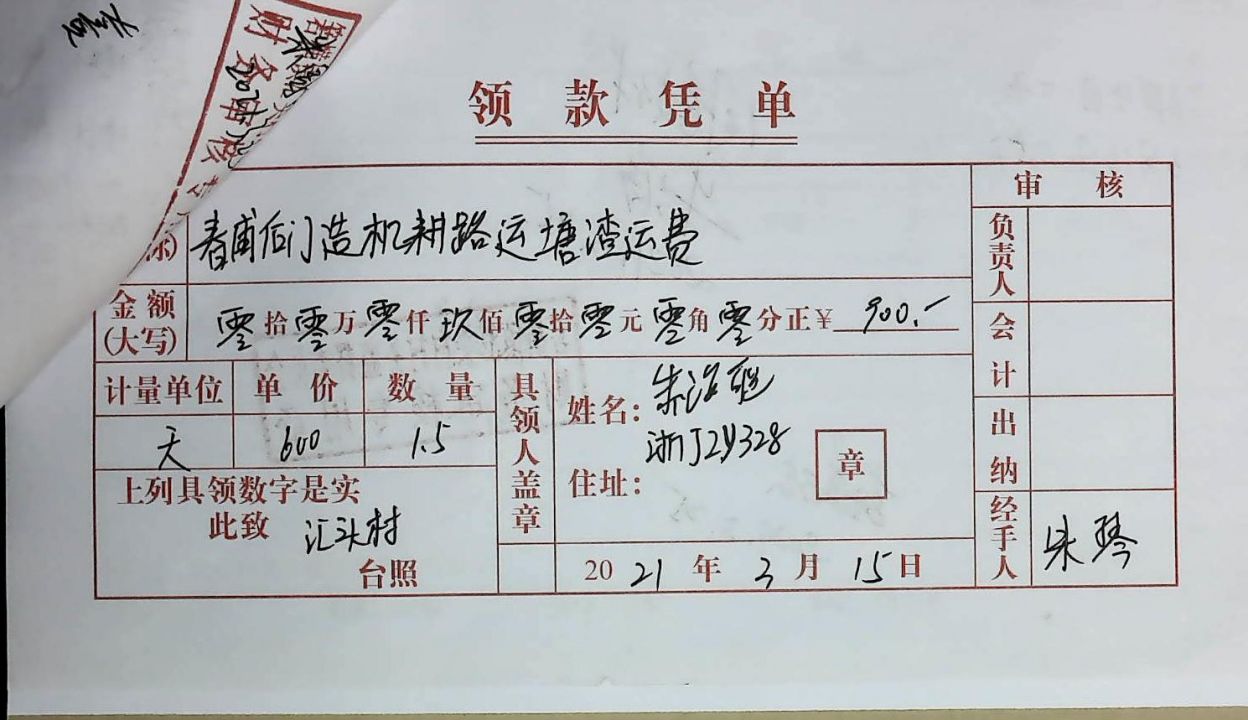 领款凭单
审核
春甫后门造机耕路运塘渣运费
负责人
金额(大写) 零拾零万零仟玖佰零拾零元零角零分正¥ 900.-
会计
计量单位 单价 数量
天 600 1.5
具领人盖章
姓名: 朱
浙J2Y328
住址:
章
出纳
上列具领数字是实
此致 汇头村
台照
2021年3月15日
经手人 朱琴
财务审核